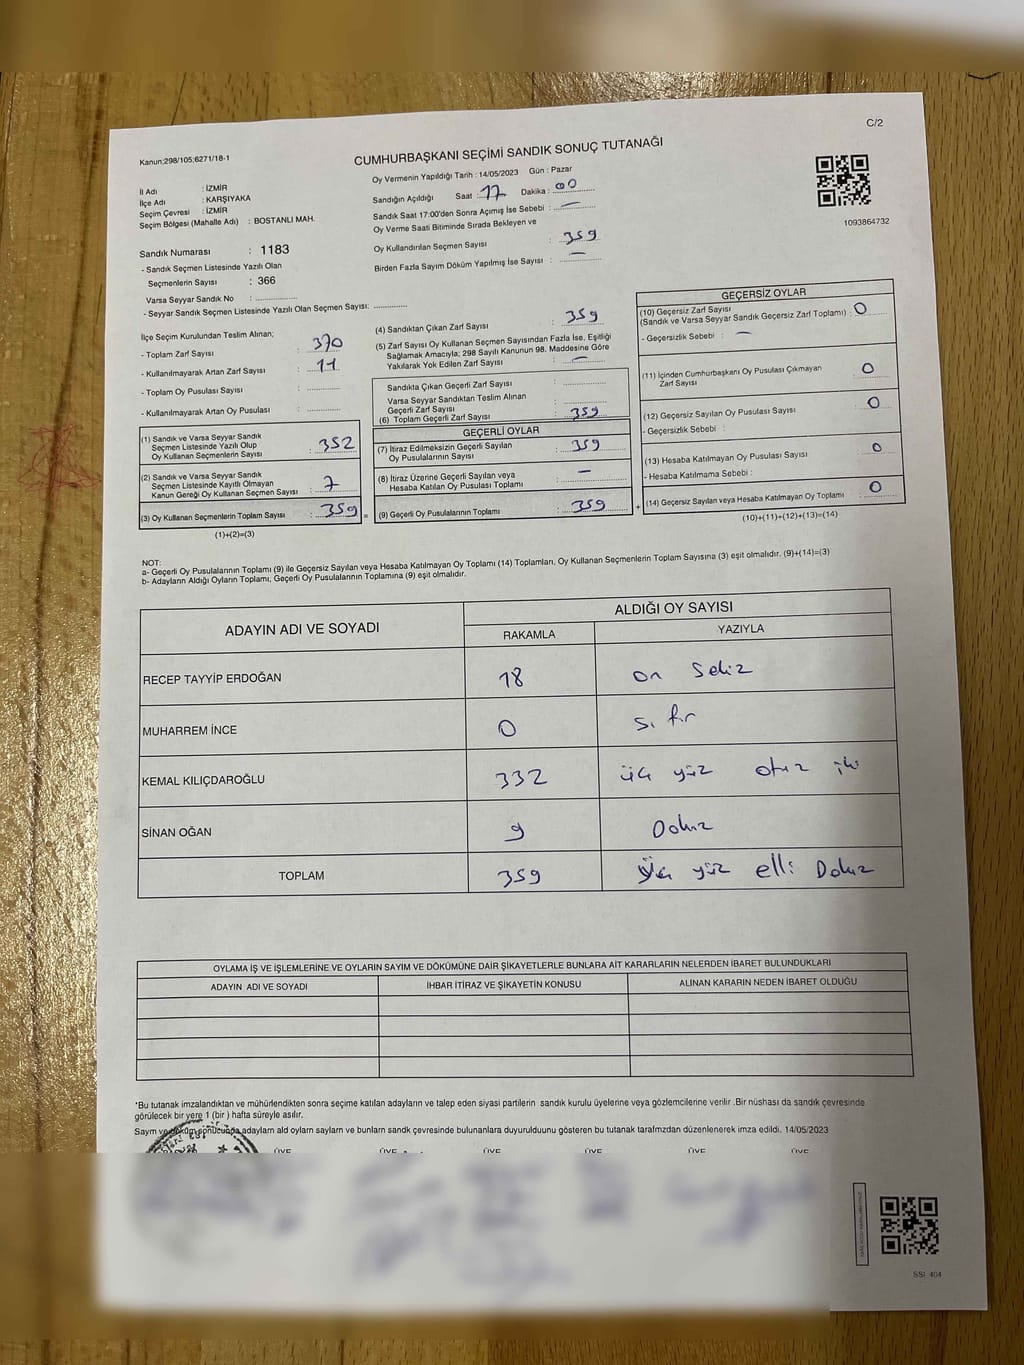 C/2
Kanun:298/105;6271/18-1
CUMHURBAŞKANI SEÇİMİ SANDIK SONUÇ TUTANAĞI
İl Adı : İZMİR
İlçe Adı : KARŞIYAKA
Seçim Çevresi : İZMİR
Seçim Bölgesi (Mahalle Adı) : BOSTANLI MAH.
Oy Vermenin Yapıldığı Tarih : 14/05/2023 Gün : Pazar
Sandığın Açıldığı Saat : 17 Dakika : 00
Sandık Saat 17:00'den Sonra Açımış İse Sebebi : —
Oy Verme Saati Bitiminde Sırada Bekleyen ve
Oy Kullandırılan Seçmen Sayısı : 359
Birden Fazla Sayım Döküm Yapılmış İse Sayısı : —
1093864732
Sandık Numarası : 1183
- Sandık Seçmen Listesinde Yazılı Olan
Seçmenlerin Sayısı : 366
Varsa Seyyar Sandık No : ..............
- Seyyar Sandık Seçmen Listesinde Yazılı Olan Seçmen Sayısı: ............
İlçe Seçim Kurulundan Teslim Alınan;
- Toplam Zarf Sayısı : 370
- Kullanılmayarak Artan Zarf Sayısı : 11
- Toplam Oy Pusulası Sayısı : ............
- Kullanılmayarak Artan Oy Pusulası : ............
(1) Sandık ve Varsa Seyyar Sandık
Seçmen Listesinde Yazılı Olup
Oy Kullanan Seçmenlerin Sayısı : 352
(2) Sandık ve Varsa Seyyar Sandık
Seçmen Listesinde Kayıtlı Olmayan
Kanun Gereği Oy Kullanan Seçmen Sayısı : 7
(3) Oy Kullanan Seçmenlerin Toplam Sayısı : 359 =
(1)+(2)=(3)
(4) Sandıktan Çıkan Zarf Sayısı : 359
(5) Zarf Sayısı Oy Kullanan Seçmen Sayısından Fazla İse, Eşitliği
Sağlamak Amacıyla; 298 Sayılı Kanunun 98. Maddesine Göre
Yakılarak Yok Edilen Zarf Sayısı : —
Sandıkta Çıkan Geçerli Zarf Sayısı : ............
Varsa Seyyar Sandıktan Teslim Alınan
Geçerli Zarf Sayısı : ............
(6) Toplam Geçerli Zarf Sayısı : 359
GEÇERLİ OYLAR
(7) İtiraz Edilmeksizin Geçerli Sayılan
Oy Pusulalarının Sayısı : 359
(8) İtiraz Üzerine Geçerli Sayılan veya
Hesaba Katılan Oy Pusulası Toplamı : —
(9) Geçerli Oy Pusulalarının Toplamı : 359 +
GEÇERSİZ OYLAR
(10) Geçersiz Zarf Sayısı
(Sandık ve Varsa Seyyar Sandık Geçersiz Zarf Toplamı) : 0
- Geçersizlik Sebebi : —
(11) İçinden Cumhurbaşkanı Oy Pusulası Çıkmayan
Zarf Sayısı 0
(12) Geçersiz Sayılan Oy Pusulası Sayısı 0
- Geçersizlik Sebebi :
(13) Hesaba Katılmayan Oy Pusulası Sayısı 0
- Hesaba Katılmama Sebebi :
(14) Geçersiz Sayılan veya Hesaba Katılmayan Oy Toplamı 0
(10)+(11)+(12)+(13)=(14)
NOT:
a- Geçerli Oy Pusulalarının Toplamı (9) ile Geçersiz Sayılan veya Hesaba Katılmayan Oy Toplamı (14) Toplamları, Oy Kullanan Seçmenlerin Toplam Sayısına (3) eşit olmalıdır. (9)+(14)=(3)
b- Adayların Aldığı Oyların Toplamı, Geçerli Oy Pusulalarının Toplamına (9) eşit olmalıdır.
ADAYIN ADI VE SOYADI
ALDIĞI OY SAYISI
RAKAMLA YAZIYLA
RECEP TAYYİP ERDOĞAN 18 on Sekiz
MUHARREM İNCE 0 Sıfır
KEMAL KILIÇDAROĞLU 332 üç yüz otuz iki
SİNAN OĞAN 9 Dokuz
TOPLAM 359 Üç yüz elli Dokuz
OYLAMA İŞ VE İŞLEMLERİNE VE OYLARIN SAYIM VE DÖKÜMÜNE DAİR ŞİKAYETLERLE BUNLARA AİT KARARLARIN NELERDEN İBARET BULUNDUKLARI
ADAYIN ADI VE SOYADI İHBAR İTİRAZ VE ŞİKAYETİN KONUSU ALINAN KARARIN NEDEN İBARET OLDUĞU
*Bu tutanak imzalandıktan ve mühürlendikten sonra seçime katılan adayların ve talep eden siyasi partilerin sandık kurulu üyelerine veya gözlemcilerine verilir .Bir nüshası da sandık çevresinde
görülecek bir yere 1 (bir ) hafta süreyle asılır.
Sayım ve döküm sonucunda adayların ald oyların sayların ve bunların sandk çevresinde bulunanlara duyurulduunu gösteren bu tutanak tarafmzdan düzenlenerek imza edildi. 14/05/2023
ÜYE ÜYE ÜYE ÜYE ÜYE ÜYE
SSİ 404